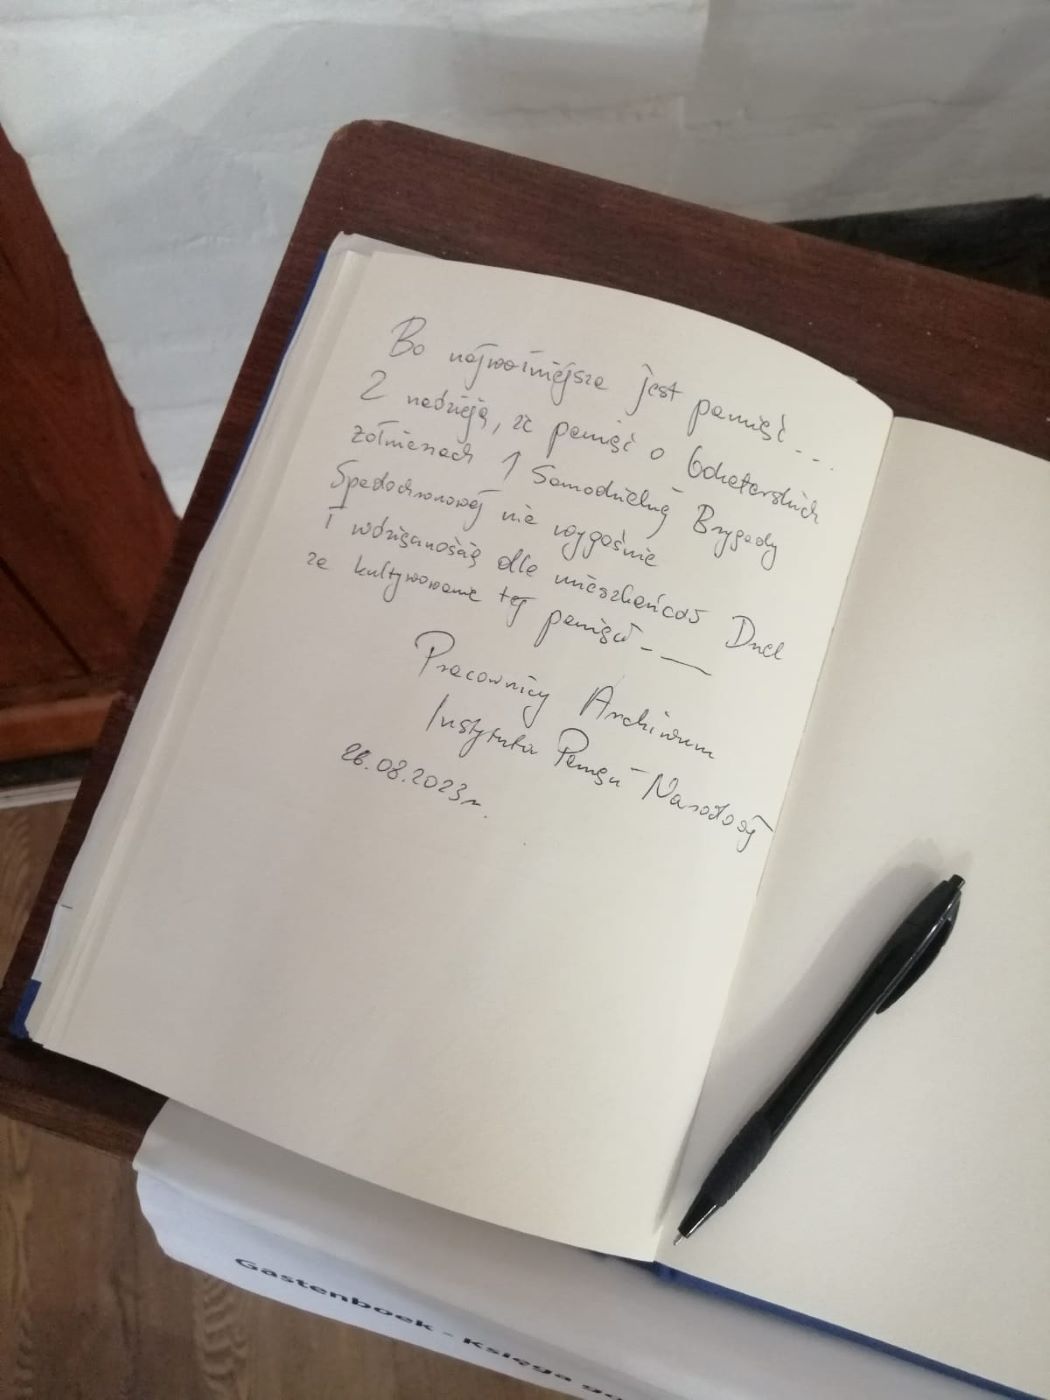 Bo najważniejsza jest pamięć...
Z nadzieją, że pamięć o bohaterskich
żołnierzach 1 Samodzielnej Brygady
Spadochronowej nie wygaśnie
I wdzięcznością dla mieszkańców Driel
za kultywowanie tej pamięci
Pracownicy Archiwum
Instytutu Pamięci Narodowej
26.08.2023r.
Gastenboek - Księga go